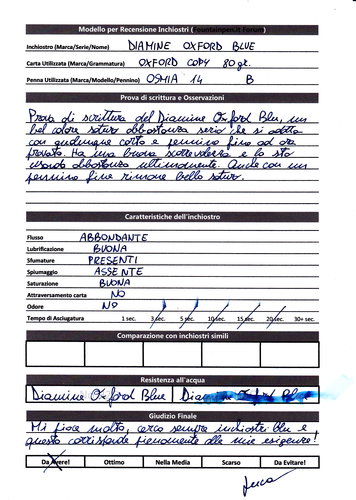 Modello per Recensione Inchiostri (fountainpen.it Forum)
Inchiostro (Marca/Serie/Nome) DIAMINE OXFORD BLUE
Carta Utilizzata (Marca/Grammatura) OXFORD COPY 80 gr.
Penna Utilizzata (Marca/Modello/Pennino) OSMIA 14 B
Prova di scrittura e Osservazioni
Prova di scrittura del Diamine Oxford Blu, un
bel colore saturo abbastanza serio che si adatta
con qualunque carta e pennino fino ad ora
provato. Ha una buona scorrevolezza e lo sto
usando abbastanza ultimamente. Anche con un
pennino fine rimane bello saturo.
Caratteristiche dell'inchiostro
Flusso ABBONDANTE
Lubrificazione BUONA
Sfumature PRESENTI
Spiumaggio ASSENTE
Saturazione BUONA
Attraversamento carta NO
Odore NO
Tempo di Asciugatura 1 sec. 3 sec. 5 sec. 10 sec. 15 sec. 20 sec. 30+ sec.
Comparazione con inchiostri simili
Resistenza all'acqua
Diamine Oxford Blue Diamine Oxford Blue
Giudizio Finale
Mi piace molto, cerco sempre inchiostri blu e
questo corrisponde pienamente alle mie esigenze!
Da Avere! Ottimo Nella Media Scarso Da Evitare!